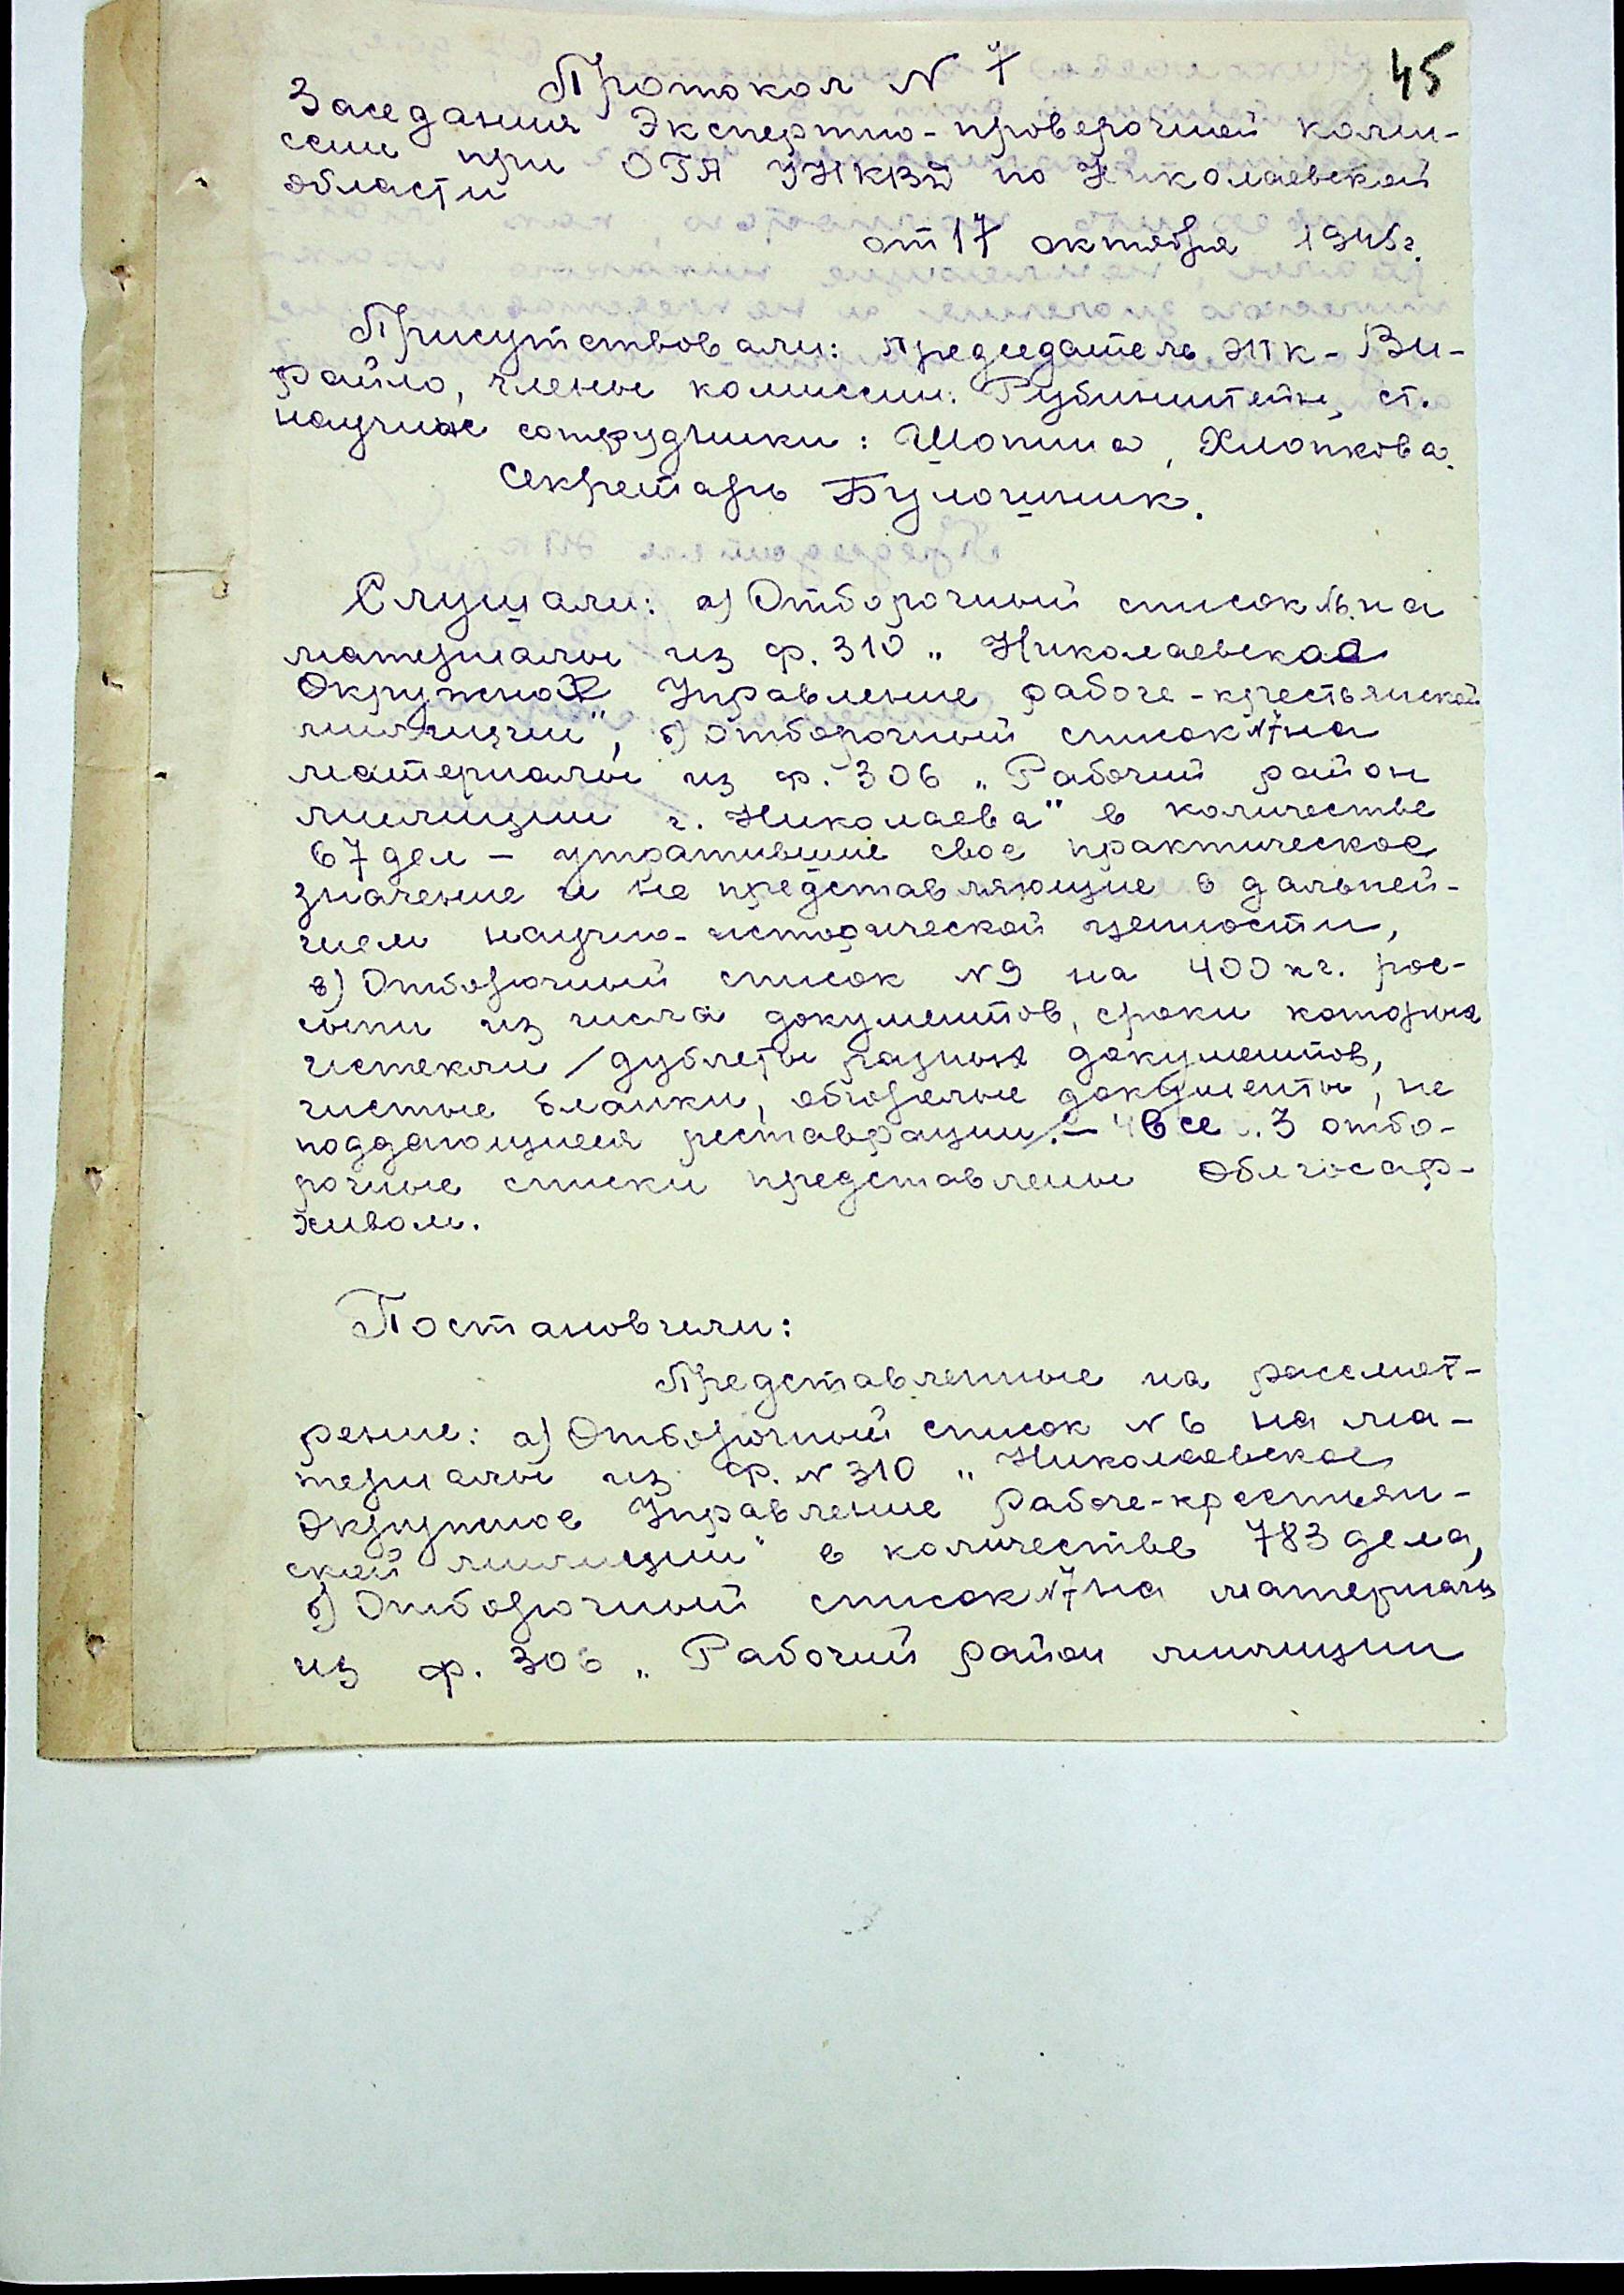 45
Протокол N 7
Заседания Экспертно-проверочной коми-
ссии при ОГА УНКВД по Николаевской
области
от 17 октября 1945г.
Присутствовали: председатель ЭПК - Ви-
райло, члены комиссии: Рубинштейн, ст.
научные сотрудники: Шопина, Хлопкова.
Секретарь Булошник.
Слушали: а) Отборочный список №6 на
материалы из ф. 310 „Николаевская
Окружное Управление рабоче-крестьянской
милиции", б) отборочный список N7 на
материалы из ф. 306 „Рабочий район
милиции г. Николаева" в количестве
67 дел - утратившие свое практическое
значение и не представляющие в дальней-
шем научно-исторической ценности,
в) Отборочный список N9 на 400 кг. рос-
сыпи из числа документов, сроки которых
истекли /дублеты разных документов,
чистые бланки, обгорелые документы, не
поддающиеся реставрации/. - Все 3 отбо-
рочные списки представлены Облгосар-
хивом.
Постановили:
Представленные на рассмот-
рение: а) Отборочный список N 6 на ма-
териалы из ф. N 310 „Николаевское
Окружное Управление Рабоче-крестьян-
ской милиции" в количестве 783 дела,
б) Отборочный список N7 на материалы
из ф. 306 „Рабочий район милиции